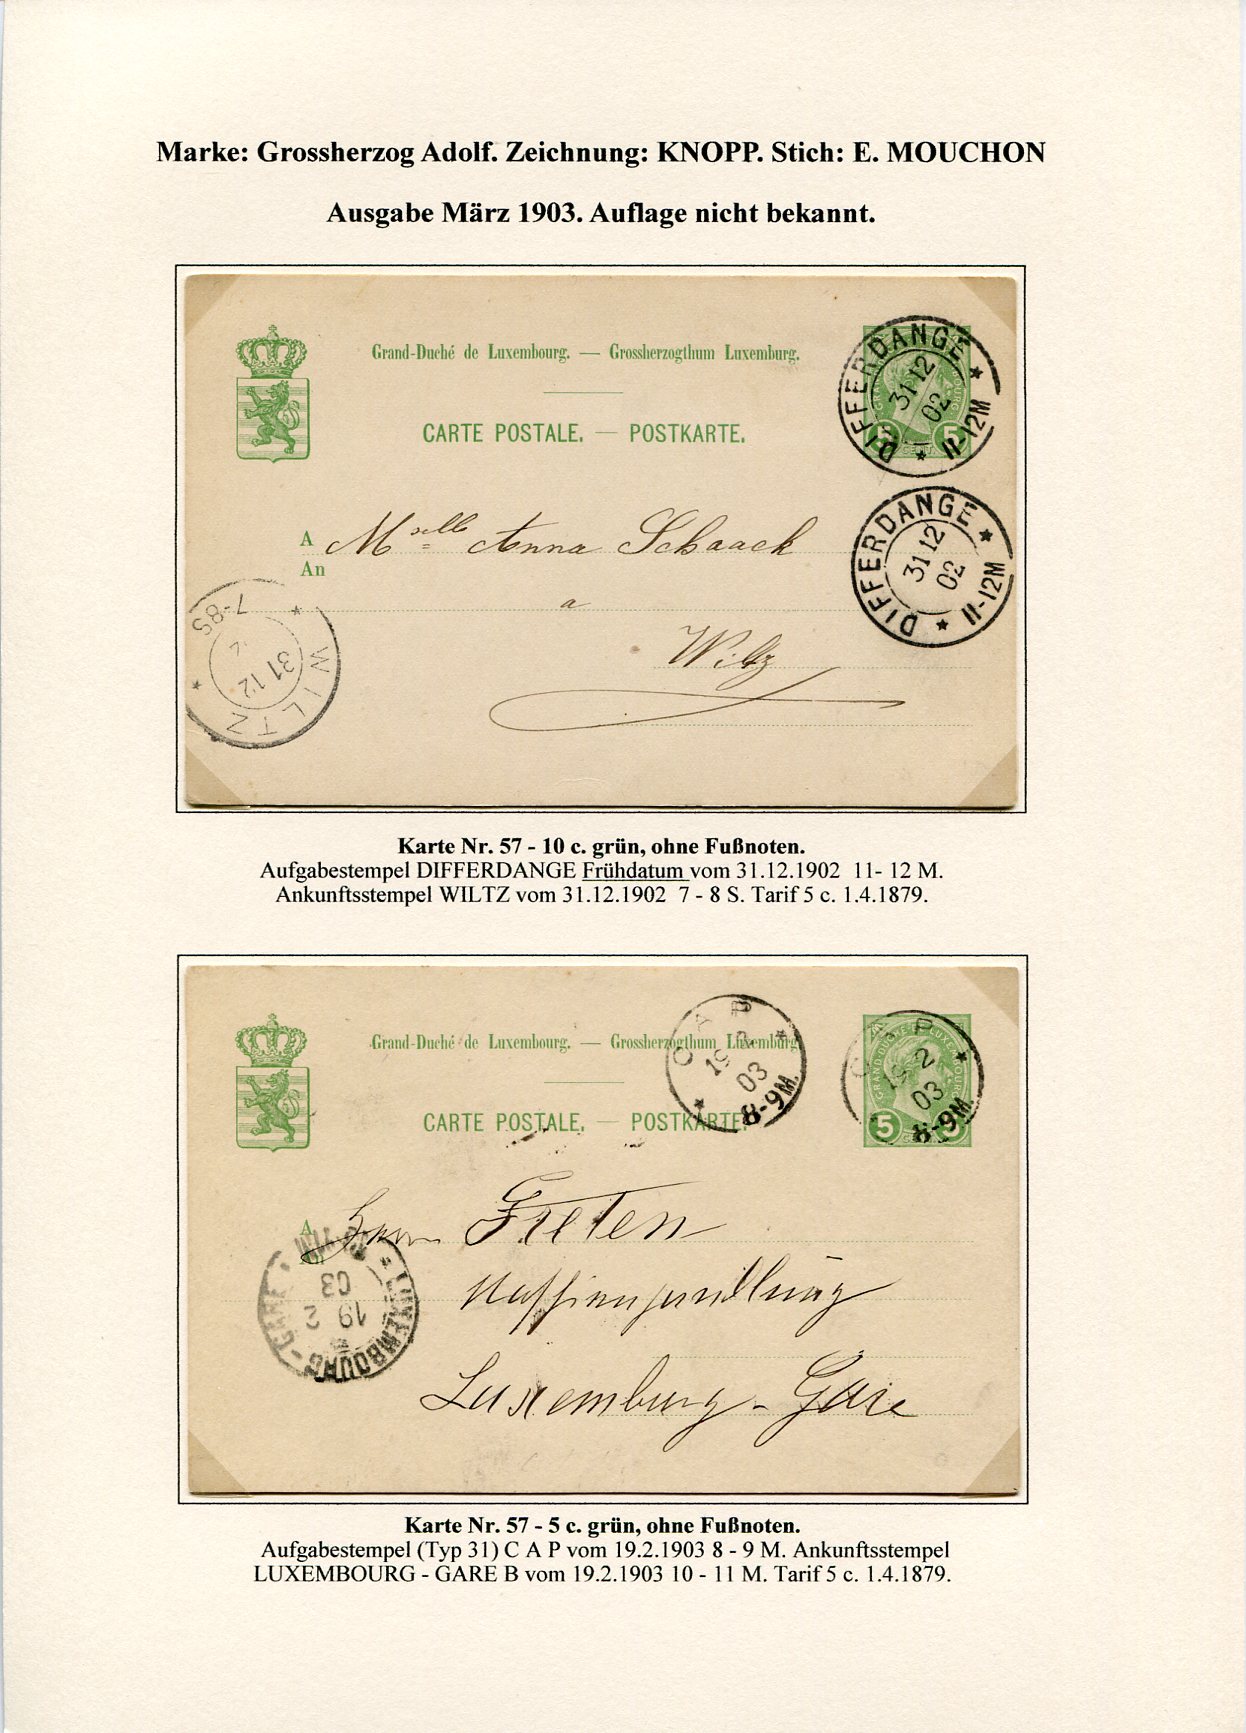 Marke: Grossherzog Adolf. Zeichnung: KNOPP. Stich: E. MOUCHON
Ausgabe März 1903. Auflage nicht bekannt.
Grand-Duché de Luxembourg. — Grossherzogthum Luxemburg.
CARTE POSTALE. — POSTKARTE.
5 5
CENT.
DIFFERDANGE
31 12
02
11-12M
DIFFERDANGE
31 12
02
11-12M
A Mselle Anna Schaack
An
a
Wiltz
WILTZ
31 12
7-8S
Karte Nr. 57 - 10 c. grün, ohne Fußnoten.
Aufgabestempel DIFFERDANGE Frühdatum vom 31.12.1902 11- 12 M.
Ankunftsstempel WILTZ vom 31.12.1902 7 - 8 S. Tarif 5 c. 1.4.1879.
Grand-Duché de Luxembourg. — Grossherzogthum Luxemburg.
CARTE POSTALE. — POSTKARTE.
CAP
19 2
03
8-9M.
CAP
19 2
03
8-9M.
GRAND-DUCHÉ DE LUXEMBOURG
5 5
CENT.
A Herrn Freten
Luxemburg-Gare
LUXEMBOURG-GARE
19 2
03
Karte Nr. 57 - 5 c. grün, ohne Fußnoten.
Aufgabestempel (Typ 31) C A P vom 19.2.1903 8 - 9 M. Ankunftsstempel
LUXEMBOURG - GARE B vom 19.2.1903 10 - 11 M. Tarif 5 c. 1.4.1879.